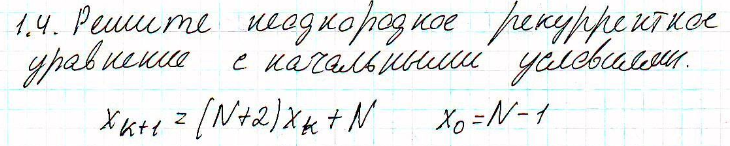 1.4. Решите неоднородное рекуррентное
уравнение с начальными условиями.
x_{k+1} = (N+2)x_k + N    x_0 = N-1